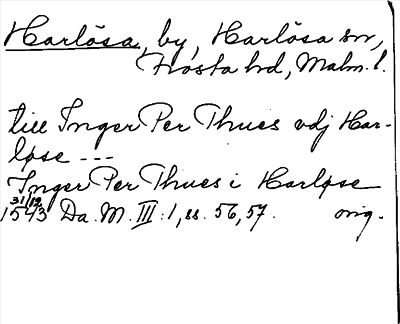 Harlösa, by, Harlösa sn,
Frosta hd, Malm. l.
till Inger Per Thues vdj Har-
løse ---
Inger Per Thues i Harløse
31/12
1543 Da. M. III:1, ss. 56, 57. orig.